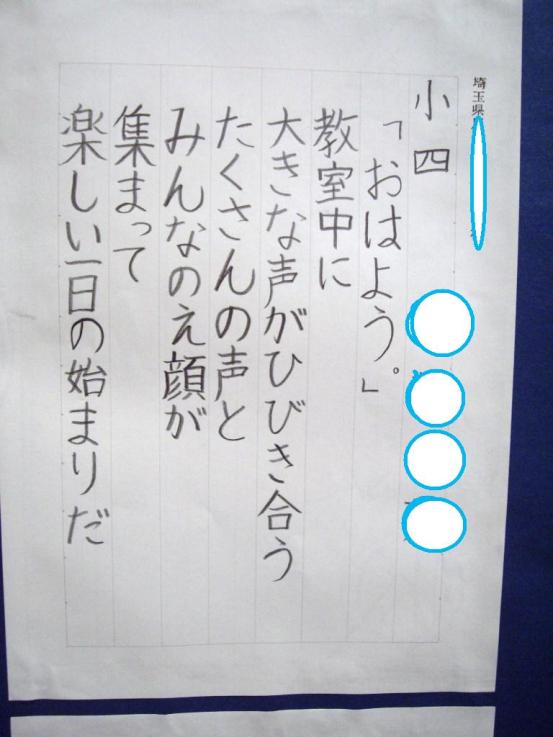 埼玉県
小四
「おはよう。」
教室中に
大きな声がひびき合う
たくさんの声と
みんなのえ顔が
集まって
楽しい一日の始まりだ